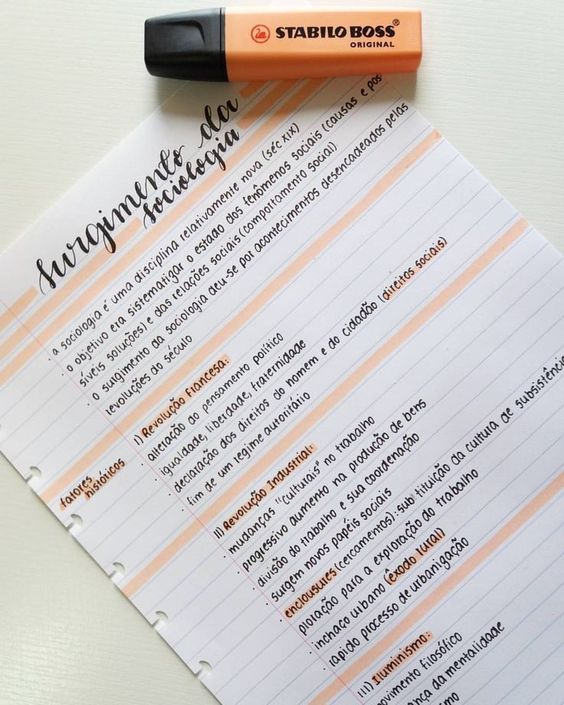 STABILO BOSS®
ORIGINAL
surgimento da
sociologia
a sociologia é uma disciplina relativamente nova (séc XIX)
· o objetivo era sistematizar o estado dos fenômenos sociais (causas e pos
síveis soluções) e das relações sociais (comportamento social)
· o surgimento da sociologia deu-se por acontecimentos desencadeados pelas
revoluções do século
fatores
históricos
I) Revolução Francesa:
· alteração do pensamento político
· igualdade, liberdade, fraternidade
· declaração dos direitos do homem e do cidadão (direitos sociais)
· fim de um regime autoritário
II) Revolução Industrial:
· mudanças "culturais" no trabalho
· progressivo aumento na produção de bens
· divisão do trabalho e sua coordenação
· surgem novos papéis sociais
· enclousures (cercamentos): substituição da cultura de subsistênci
ploração para a exploração do trabalho
· inchaço urbano (êxodo rural)
· rápido processo de urbanização
III) Iluminismo:
movimento filosófico
ança da mentalidade
ismo